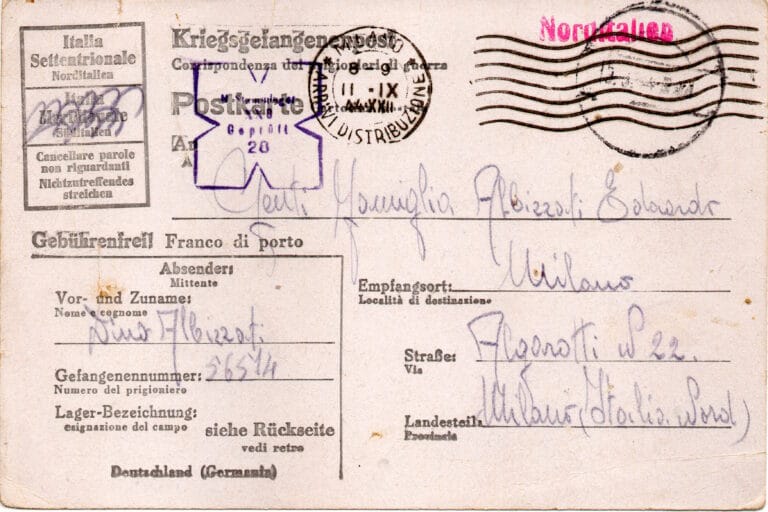 Italia
Settentrionale
Norditalien
Italia
Meridionale
Süditalien
Cancellare parole
non riguardanti
Nichtzutreffendes
streichen
Kriegsgefangenenpost
Corrispondenza dei prigionieri di guerra
Postkarte
An
A
Geprüft
28
MILANO
8-9
11-IX
44·XXII
ARRIVI DISTRIBUZIONE
Norditalien
Gent. Famiglia Albizzati Edoardo
Gebührenfrei! Franco di porto
Milano
Absender:
Mittente
Empfangsort:
Località di destinazione
Vor- und Zuname:
Nome e cognome
Dino Albizzati
Straße:
Via
Algarotti N 22.
Gefangenennummer:
Numero del prigioniero
56514
Milano (Italia Nord)
Landesteil:
Provincia
Lager-Bezeichnung:
esignazione del campo
siehe Rückseite
vedi retro
Deutschland (Germania)